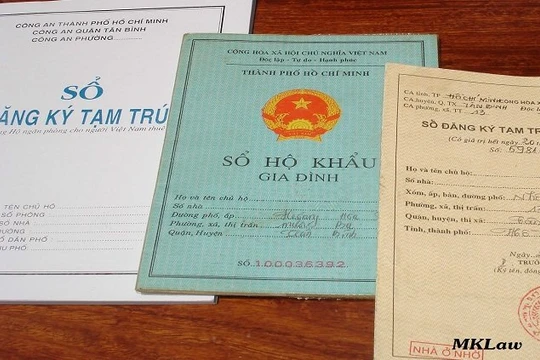 CÔNG AN THÀNH PHỐ HỒ CHÍ MINH
CÔNG AN QUẬN TÂN BÌNH
CÔNG AN PHƯỜNG:
SỔ
ĐĂNG KÝ TẠM TRÚ
TÊN CHỦ HỘ
SỐ PHÒNG
SỐ NHÀ
ĐƯỜNG
TỔ DÂN PHỐ
KHU PHỐ
CỘNG HÒA XÃ HỘI CHỦ NGHĨA VIỆT NAM
Độc lập - Tự do - Hạnh phúc
THÀNH PHỐ HỒ CHÍ MINH
SỔ HỘ KHẨU
GIA ĐÌNH
Họ và tên chủ hộ
Số nhà
Đường phố, ấp
Phường, xã, thị trấn
Quận, Huyện
SỐ 100036392
CA tỉnh, TP HỒ CHÍ MINH
CỘNG HÒA X
CA huyện, Q, TX TÂN BÌNH
CA phường, xã, TT 13
SỔ ĐĂNG KÝ TẠM TR
(Có giá trị hết ngày
Số:
Họ và tên chủ hộ:
Số nhà:
Xóm, ấp, bản, đường phố:
Phường, xã, thị trấn:
Quận, huyện, thị xã:
Tỉnh, thành phố:
Ngày
TRƯỞ
(Ký tên, đóng
NHÀ Ở NHỜ
MKLaw